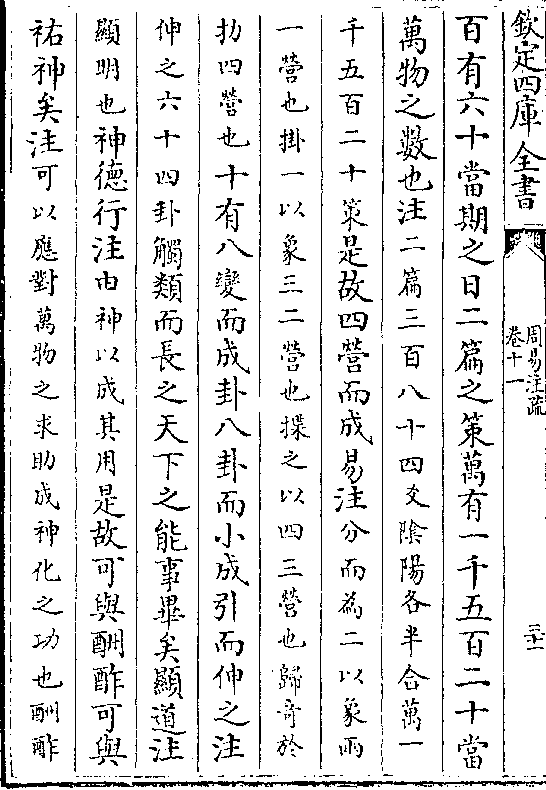 欽定四庫全書
周易注疏
卷十一
百有六十當期之日二篇之策萬有一千五百二十當
萬物之數也注二篇三百八十四爻陰陽各半合萬一
千五百二十策是故四營而成易注分而為二以象兩
一營也掛一以象三二營也揲之以四三營也歸奇於
扐四營也十有八變而成卦八卦而小成引而伸之注
伸之六十四卦觸類而長之天下之能事畢矣顯道注
顯明也神德行注由神以成其用是故可與酬酢可與
祐神矣注可以應對萬物之求助成神化之功也酬酢